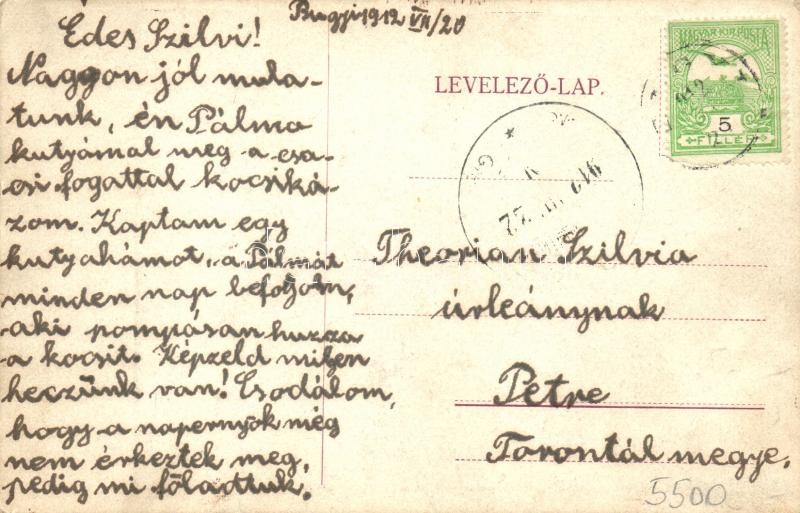 Bugyi 1912 VII/20
Édes Szilvi!
Nagyon jól mula-
tunk, én Pálma
kutyámal meg a csa-
csi fogattal kocsiká-
zom. Kaptam egy
kutyahámot, a Pálmát
minden nap befogom,
aki pompásan huzza
a kocsit. Képzeld milyen
heczünk van! Csodálom,
hogy a napernyők még
nem érkeztek meg,
pedig mi föladtuk.
LEVELEZŐ-LAP.
MAGYAR KIR. POSTA
5
FILLÉR
Theorian Szilvia
úrleánynak
Petre
Torontál megye.
5500